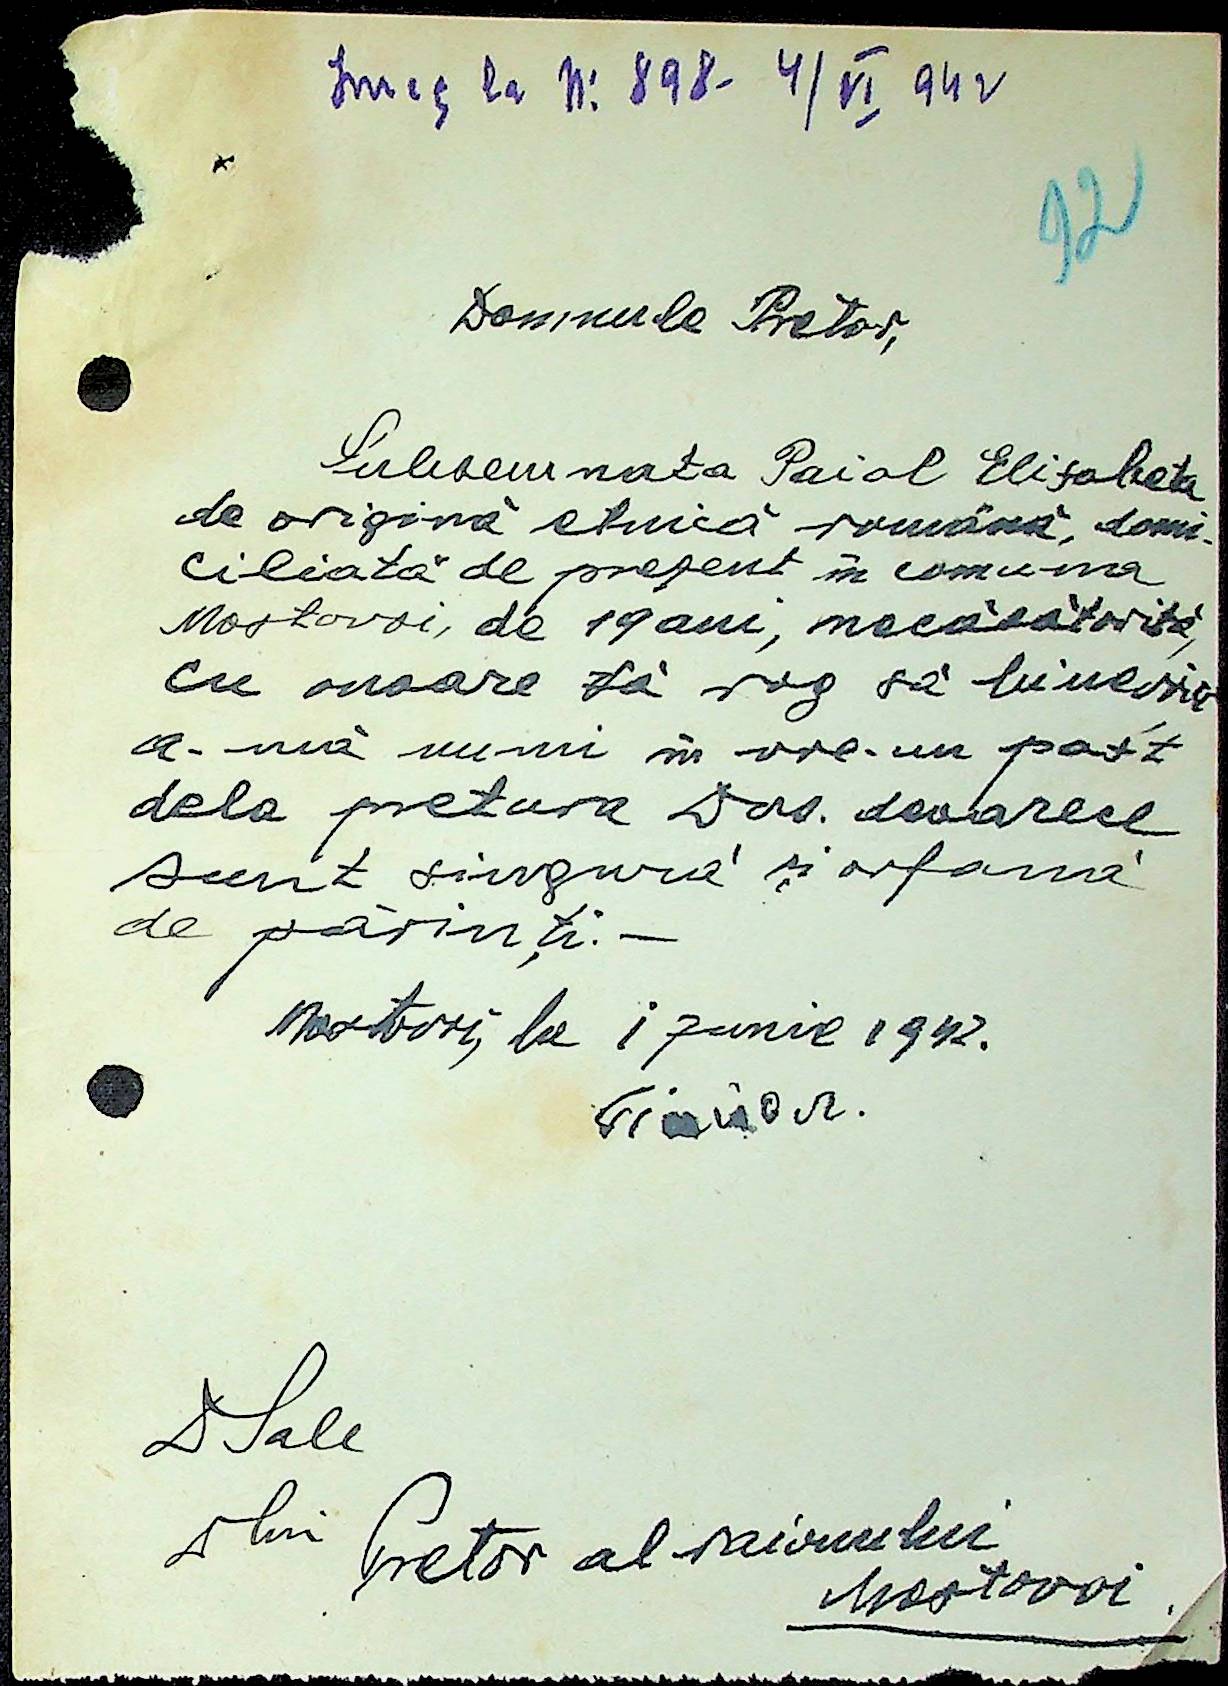 Inreg la N: 898- 4/VI 942
92
Domnule Pretor,
Subsemnata Paial Elisabeta
de origină etnică română, domi-
ciliată de prezent în comuna
Mostovoi, de 19 ani, necăsătorită,
cu onoare vă rog să binevoiți
a-mă numi în vre-un post
dela pretura Dvs. deoarece
sunt singură și orfană
de părinți. —
Mostovoi, la 1 Junie 1942.
D Sale
Dlui Pretor al raionului
Mostovoi.